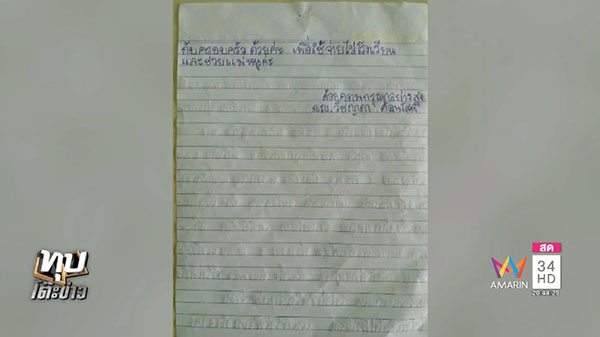 กับครอบครัว ด้วยค่ะ เพื่อใช้จ่ายไปโรงเรียน
และช่วยแม่หนูค่ะ
ด้วยความกรุณาอย่างสูง
ด.ญ. วิชญาดา
ทุบ
โต๊ะข่าว
สด
34
HD
AMARIN
20:44:29